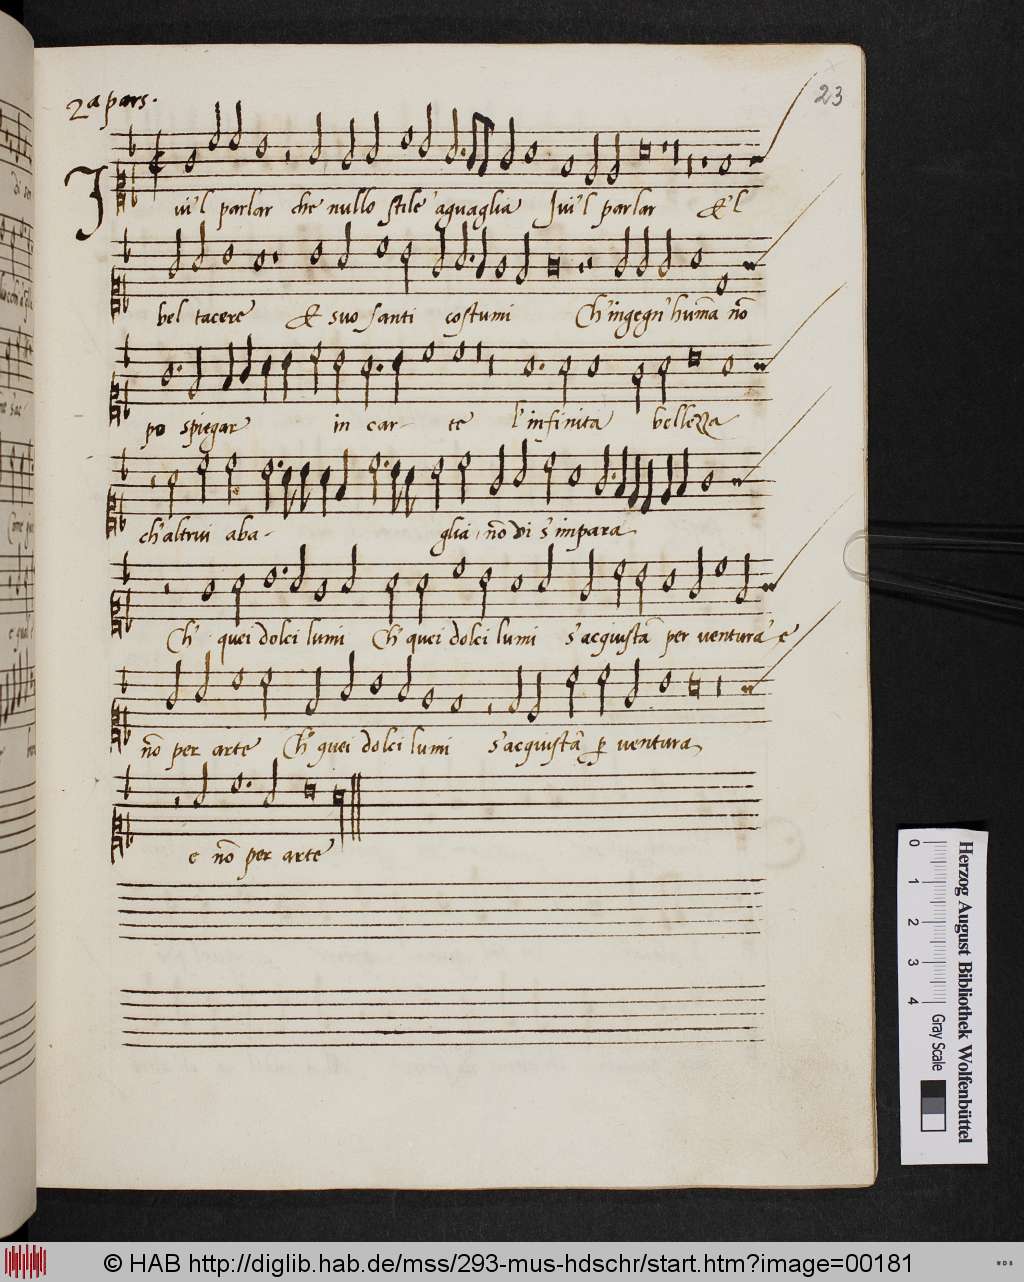 2ª pars.
23
Ivi'l parlar che nullo stile aguaglia Ivi'l parlar & 'l
bel tacere & suo santi costumi Ch'ingegn' humã nõ
po spiegar in car- te l'infinita bellezza
ch'altrui aba- glia, nõ di s'impara
Ch' quei dolci lumi Ch' quei dolci lumi s'acquistã per ventura e
nõ per arte Ch' quei dolci lumi s'acquistã p ventura
e nõ per arte
Herzog August Bibliothek Wolfenbüttel
0 1 2 3 4 Gray Scale
© HAB http://diglib.hab.de/mss/293-mus-hdschr/start.htm?image=00181